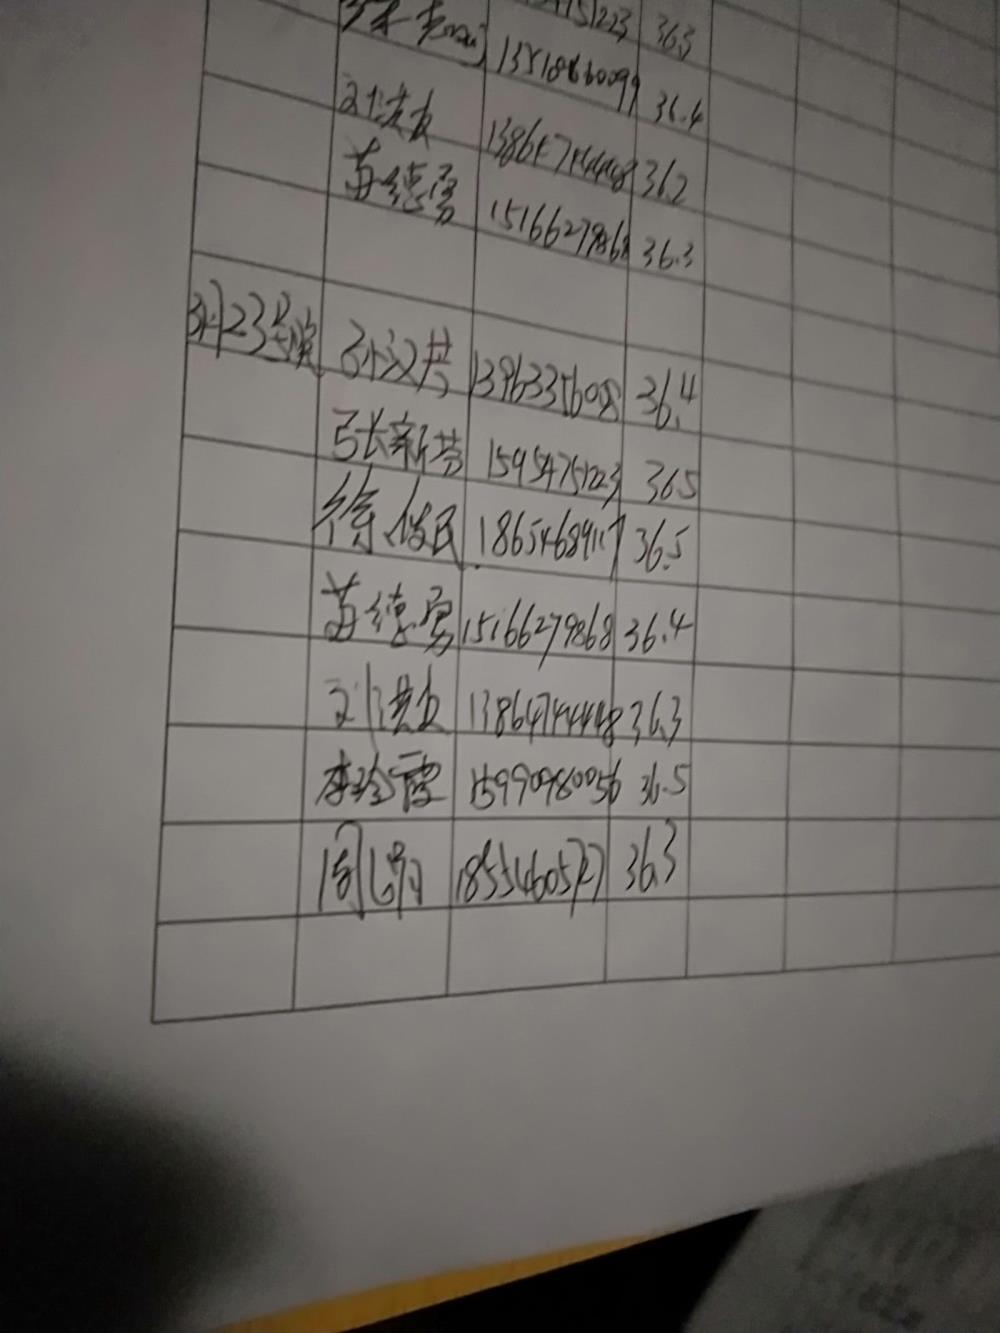 36.5
36.4
刘洪友 13864744448 36.2
苗德勇 15166279868 36.3
3月23号 孙汉共 1396335608 36.4
张新芳 15954751223 36.5
徐俊民 18654689117 36.5
苗德勇 15166279868 36.4
刘洪友 13864744448 36.3
李珍霞 15990980056 36.5
周 18554605727 36.3